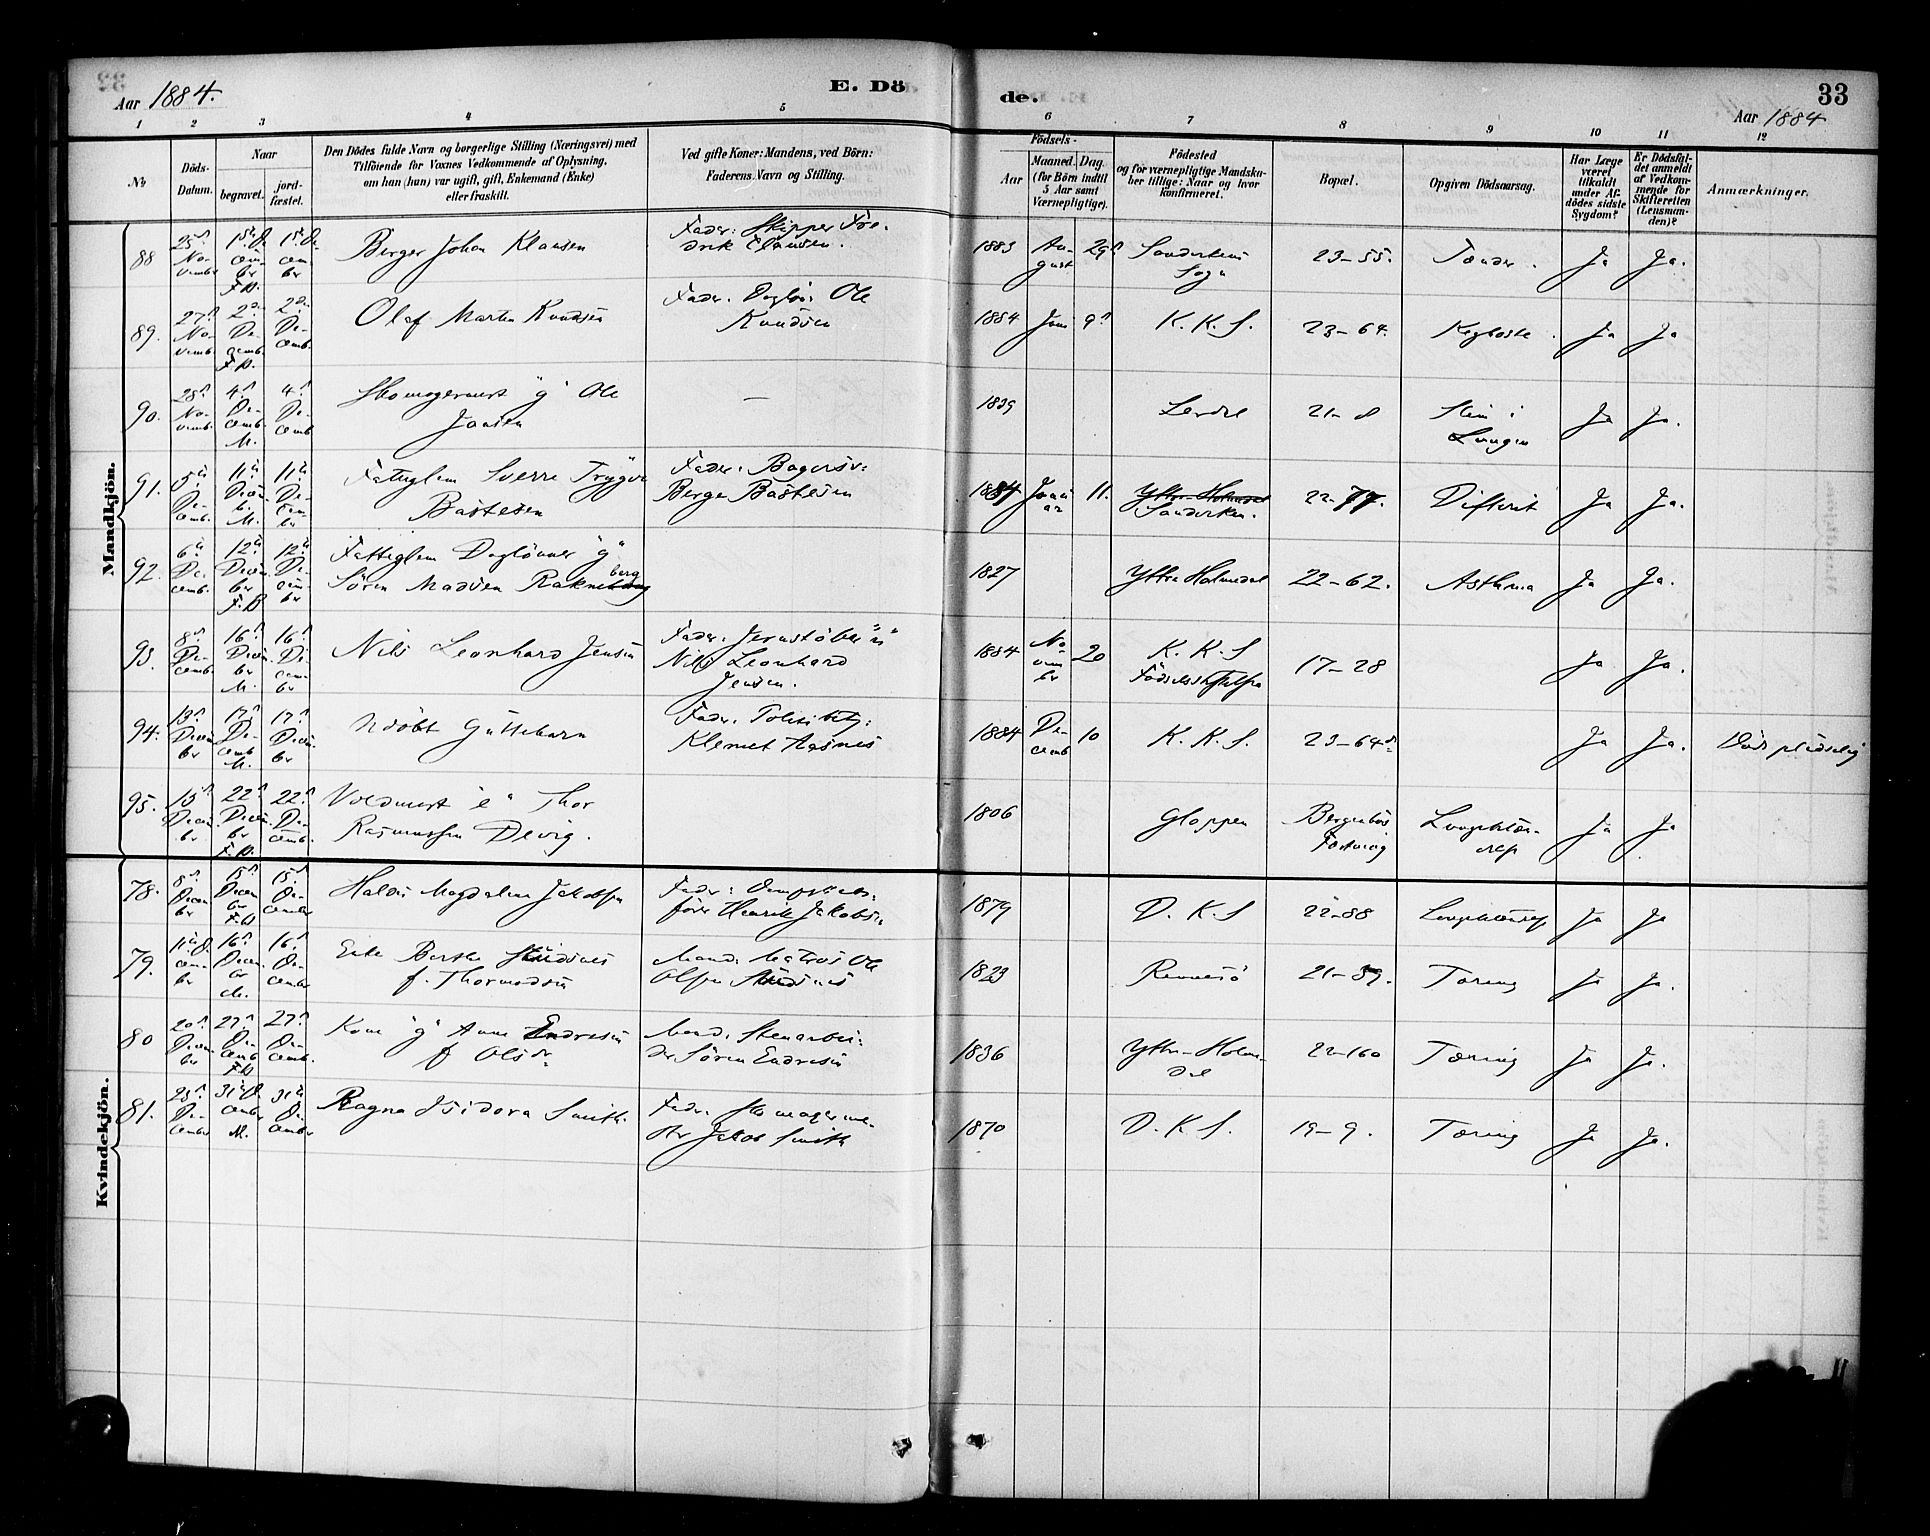 Aar 1884.
E. Dö
de.
33
Aar 1884
1 2 3 4 5 6 7 8 9 10 11 12
No
Döds-Datum.
Naar
begravet.
jord-fæstet.
Den Dödes fulde Navn og borgerlige Stilling (Næringsvei) med
Tilföiende for Voxnes Vedkommende af Oplysning,
om han (hun) var ugift, gift, Enkemand (Enke)
eller fraskilt.
Ved gifte Koner: Mandens, ved Börn:
Faderens Navn og Stilling.
Födsels-
Aar
Maaned. Dag.
(for Börn indtil
5 Aar samt
Værnepligtige).
Födested
og for værnepligtige Mandska-
ber tillige: Naar og hvor
konfirmeret.
Bopæl.
Opgiven Dödsaarsag.
Har Læge
været
tilkaldt
under Af-
dödes sidste
Sygdom?
Er Dödsfal-
det anmeldt
af Vedkom-
mende for
Skifteretten
(Lensman-
den)?
Anmærkninger.
Mandkjön.
88 25 November 1ste December F.P. 1ste December Berger Johan Klausen Fader: Skipper Fredrik Clausen. 1883 August 29 Sandvikens Sogn 23-55. Tænder. Ja Ja.
89. 27 Novemb. 2 Decemb. F.P. 2 Decemb. Olaf Martin Knudsen Fader: Dagl. Ole Knudsen 1884 Juni 9 K. K. S. 23-64. Kighoste. Ja Ja
90. 28 Novemb. 4 Decemb. M. 4 Decemb Skomagermest "g" Ole Jansen — 1839 Lerdal 21-8 Slim i Lungen Ja Ja.
91. 5 Decemb. 11 Decemb. M. 11 December Fatteglem Sverre Trygve Bastesen Fader: Bagersv: Berge Bastesen 1884 Januar 11. Yttre Holmedal Sandviken. 22-77. Difterit Ja Ja.
92. 6 Decemb. 12 December F.P. 12 December Fatteglem Daglönner "g" Sören Madsen Rakneberg 1827 Yttre Holmedal 22-62. Asthma Ja Ja.
93. 8 Decemb. 16 December M. 16 December Nils Leonhard Jensen Fader: Jernstöber "u" Nils Leonhard Jensen. 1884 November 20 K. K. S Födselsstiftelsen 17-28 Ja Ja.
94. 13 December 17 Decemb M. 17 December Udöbt Guttebarn Fader: Politibetj: Klemet Aasnes 1884 Decemb 10 K. K. S. 23-64 Ja Ja. Död pludselig
95. 15 December 22 December F.P. 22 Decemb. Voldmest "e" Thor Rasmussen Devig. 1806 Gloppen Bergenhus Fæstning Lungebetændelse Ja Ja
Kvindekjön.
78. 8 December 15 December 15 December Magdalene Jakobsen Fader: förer Henrik Jakobsen 1879 D. K. S 22-88 Ja Ja
79. 11 December 16 December M. 16 December Enke Berthe f. Thormodsen Mand: Matros Ole Olsen 1823 Rennesö 21-89. Tæring Ja Ja.
80 20 December 27 Decemb 27 Decemb. Kone "g" Anne Endresen f Olsdr Mand: Stenarbeider Sören Endresen 1836 Yttre-Holmedal 22-160 Tæring Ja Ja.
81. 23 December 31 December M. 31 December Ragna Isidora Smith. Fader: Skomagermester Jakob Smith 1870 D. K. S. 19-9. Tæring Ja Ja.